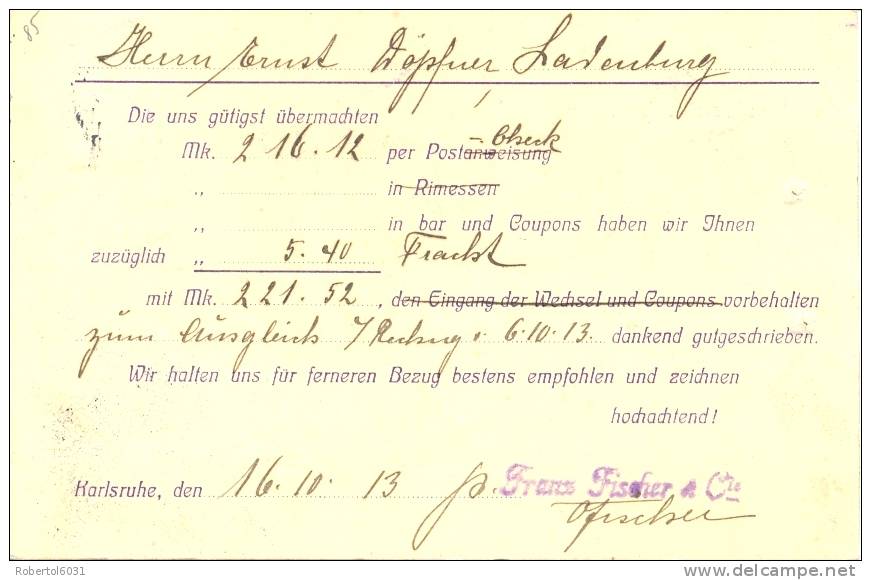 85
Herrn Ernst Döpfner, Ladenburg
Die uns gütigst übermachten
Mk. 216.12 per Postanweisung - Check
„ in Rimessen
„ in bar und Coupons haben wir Ihnen
zuzüglich „ 5.40 Fracht
mit Mk. 221.52, den Eingang der Wechsel und Coupons vorbehalten
zum Ausgleich 7/Rechng v. 6.10.13. dankend gutgeschrieben.
Wir halten uns für ferneren Bezug bestens empfohlen und zeichnen
hochachtend!
Karlsruhe, den 16.10.13 pp. Franz Fischer & Cie
OFischer
Robertol6031
www.delcampe.net